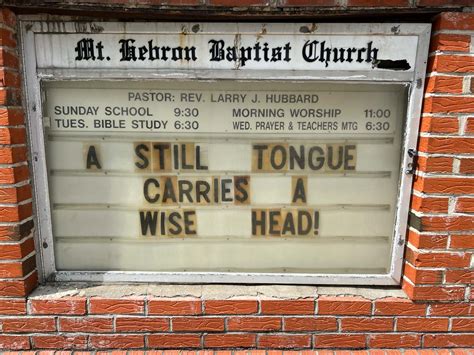 Mt. Hebron Baptist Church
PASTOR: REV. LARRY J. HUBBARD
SUNDAY SCHOOL 9:30 MORNING WORSHIP 11:00
TUES. BIBLE STUDY 6:30 WED. PRAYER & TEACHERS MTG 6:30
A STILL TONGUE
CARRIES A
WISE HEAD!